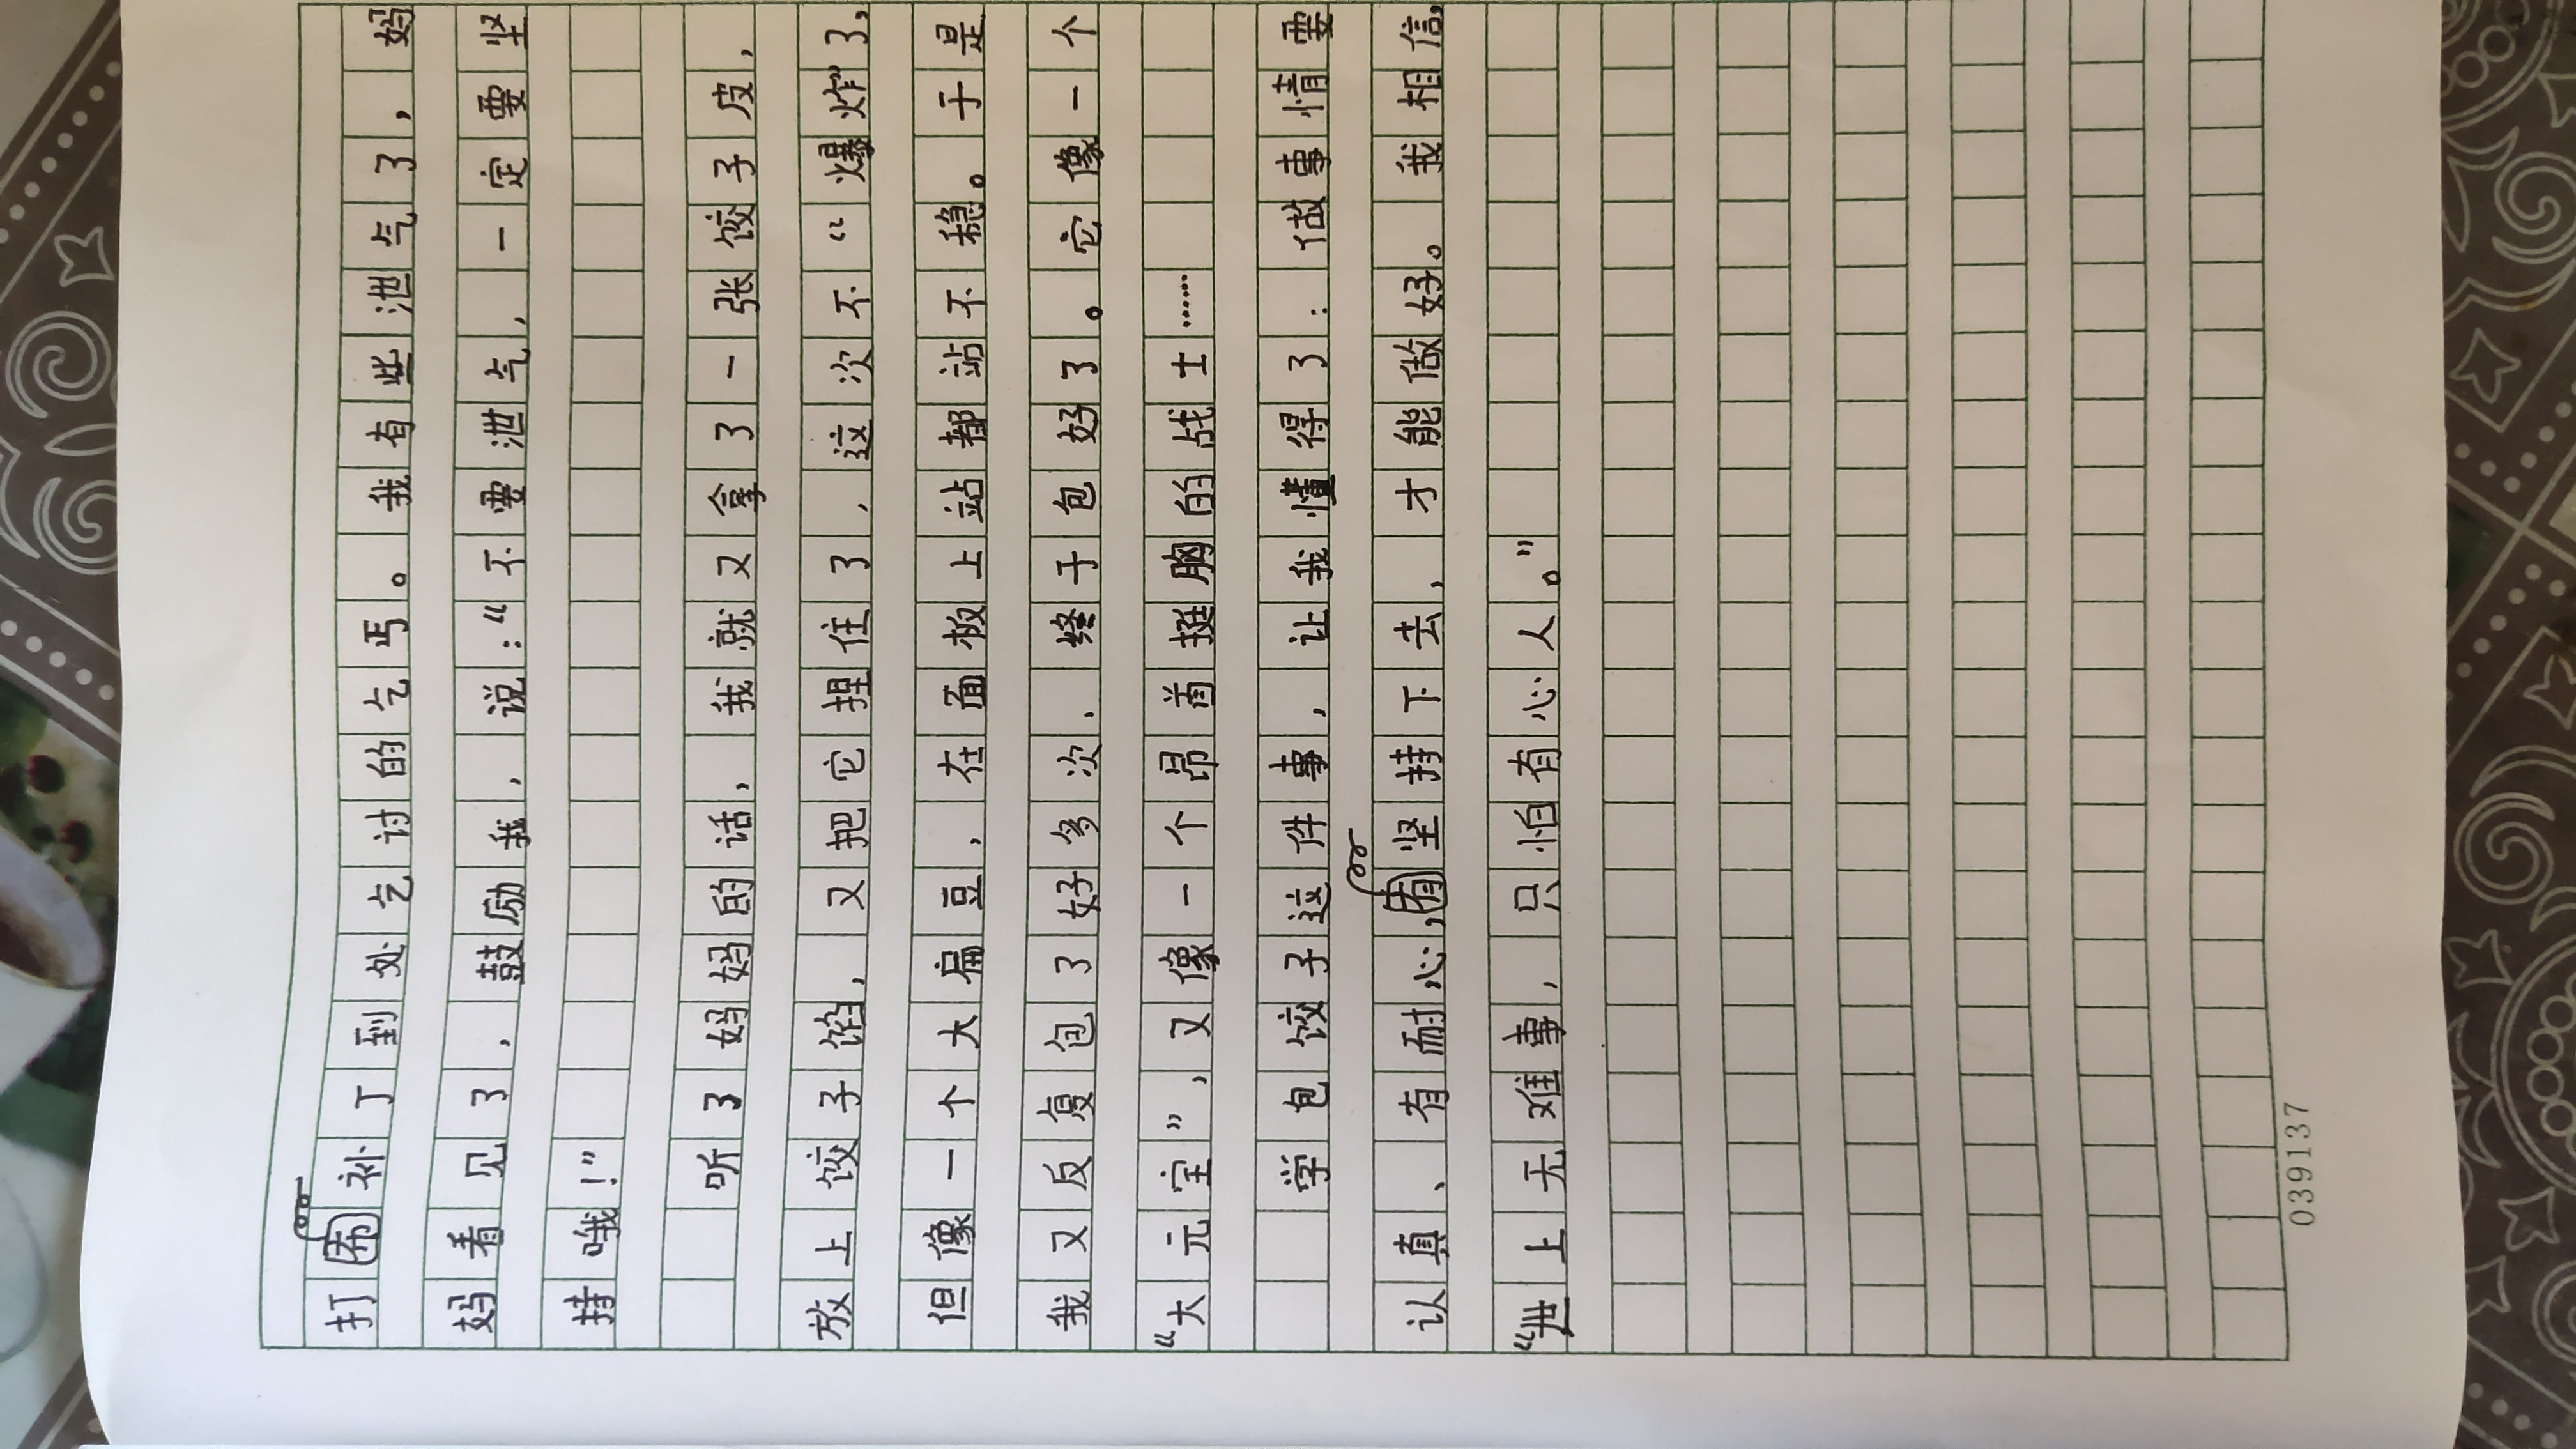 打布补丁到处乞讨的乞丐。我有些泄气了，妈
妈看见了，鼓励我，说：“不要泄气，一定要坚
持哦！”
听了妈妈的话，我就又拿了一张饺子皮，
放上饺子馅，又把它捏住了，这次不“爆炸”了，
但像一个大扁豆，在面板上站都站不稳。于是
我又反复包了好多次，终于包好了。它像一个
“大元宝”，又像一个昂首挺胸的战士……
学包饺子这件事，让我懂得了：做事情要
认真、有耐心，有坚持下去，才能做好。我相信，
“世上无难事，只怕有心人。”
039137